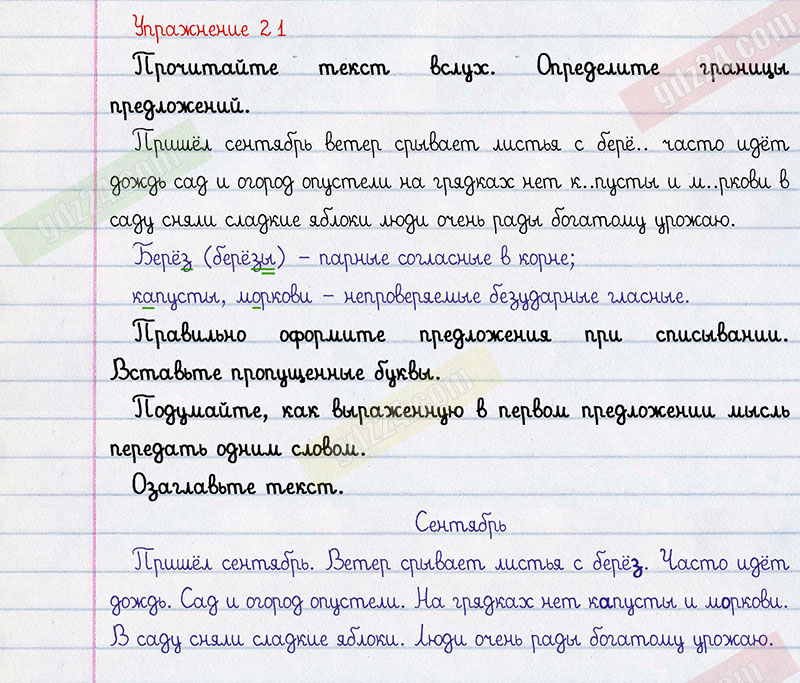 Упражнение 21
Прочитайте текст вслух. Определите границы
предложений.
Пришёл сентябрь ветер срывает листья с берё.. часто идёт
дождь сад и огород опустели на грядках нет к..пусты и м..ркови в
саду сняли сладкие яблоки люди очень рады богатому урожаю.
Берёз (берёзы) – парные согласные в корне;
капусты, моркови – непроверяемые безударные гласные.
Правильно оформите предложения при списывании.
Вставьте пропущенные буквы.
Подумайте, как выраженную в первом предложении мысль
передать одним словом.
Озаглавьте текст.
Сентябрь
Пришёл сентябрь. Ветер срывает листья с берёз. Часто идёт
дождь. Сад и огород опустели. На грядках нет капусты и моркови.
В саду сняли сладкие яблоки. Люди очень рады богатому урожаю.
gdz24.com
gdz24.com
gdz24.com